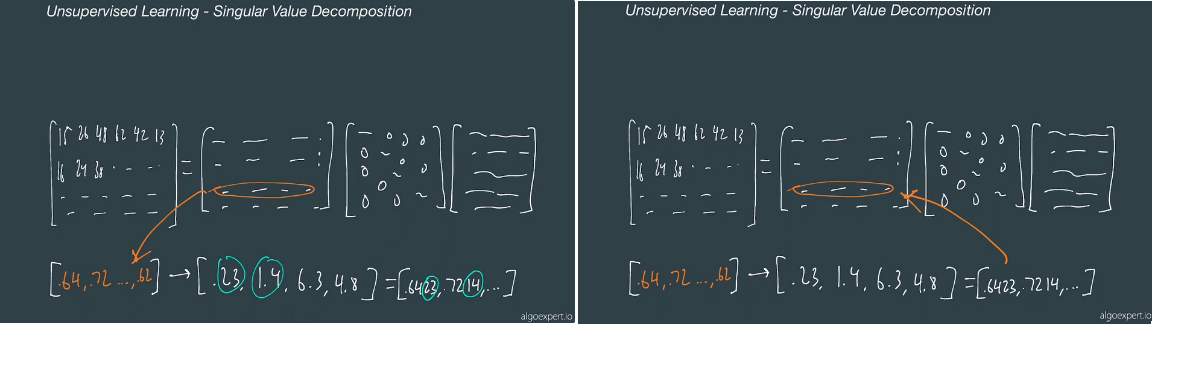 Unsupervised Learning - Singular Value Decomposition
15 26 48 62 42 13
16 24 38
=
0 0 0
0
0 0 0
0
0 0
[.64, .72 ..., .62] → [.23, 1.4, 6.3, 4.8] = [.6423, .7214, ...]
algoexpert.io
Unsupervised Learning - Singular Value Decomposition
15 26 48 62 42 13
16 24 38
=
0 0 0
0
0 0 0
0
0 0
[.64, .72 ..., .62] → [.23, 1.4, 6.3, 4.8] = [.6423, .7214, ...]
algoexpert.io